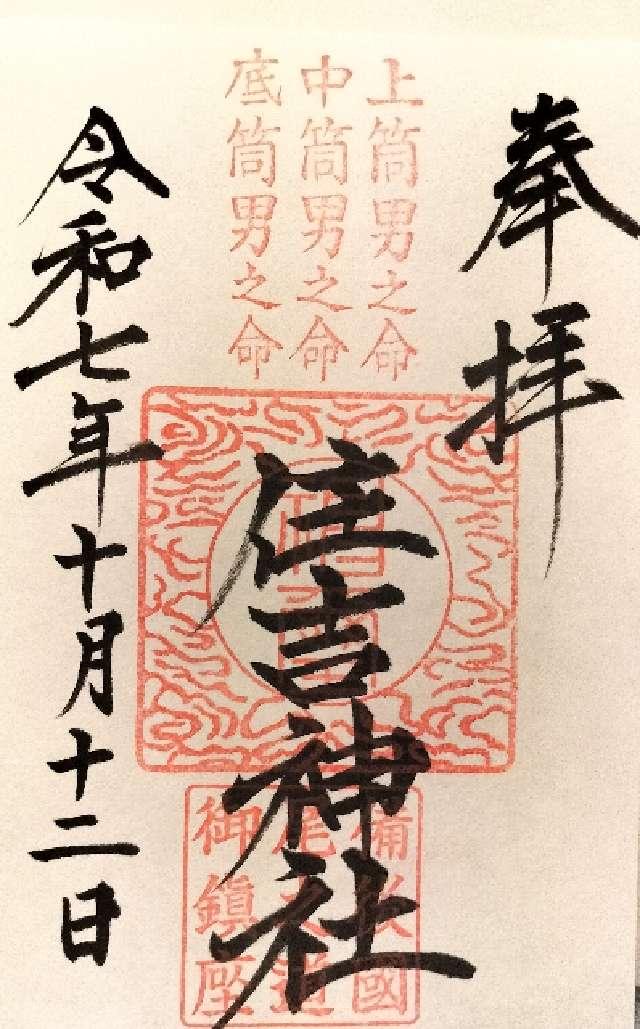 奉拝
上筒男之命
中筒男之命
底筒男之命
住吉神社
御鎮座
令和七年十月十二日